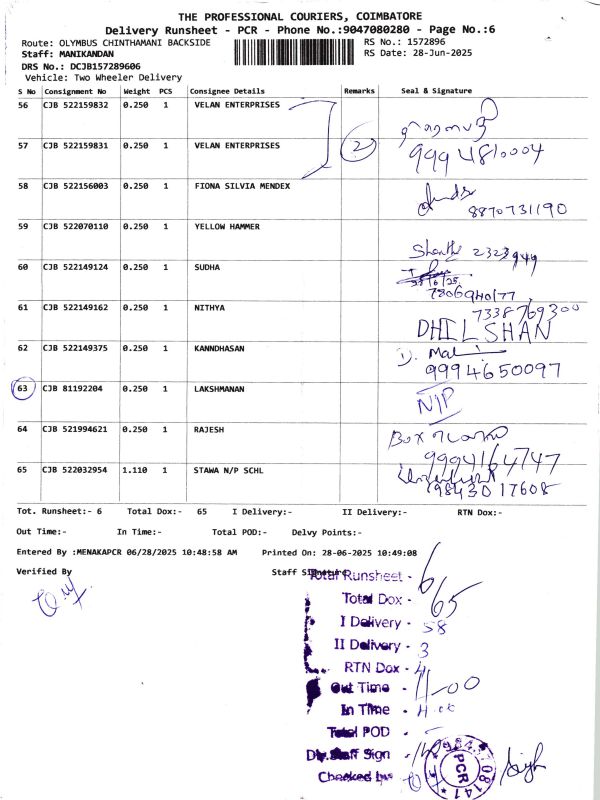 THE PROFESSIONAL COURIERS, COIMBATORE
Delivery Runsheet - PCR - Phone No.:9047080280 - Page No.:6
Route: OLYMBUS CHINTHAMANI BACKSIDE RS No.: 1572896
Staff: MANIKANDAN RS Date: 28-Jun-2025
DRS No.: DCJB157289606
Vehicle: Two Wheeler Delivery
S No Consignment No Weight PCS Consignee Details Remarks Seal & Signature
56 CJB 522159832 0.250 1 VELAN ENTERPRISES
57 CJB 522159831 0.250 1 VELAN ENTERPRISES 2 9994810004
58 CJB 522156003 0.250 1 FIONA SILVIA MENDEX 8870731190
59 CJB 522070110 0.250 1 YELLOW HAMMER Shanthi 2323949
60 CJB 522149124 0.250 1 SUDHA 28/6/25
61 CJB 522149162 0.250 1 NITHYA 7338769300 DHILSHAN
62 CJB 522149375 0.250 1 KANNDHASAN 9994650097
63 CJB 81192204 0.250 1 LAKSHMANAN N/P
64 CJB 521994621 0.250 1 RAJESH Box 9994164747
65 CJB 522032954 1.110 1 STAWA N/P SCHL 9843017608
Tot. Runsheet:- 6 Total Dox:- 65 I Delivery:- II Delivery:- RTN Dox:-
Out Time:- In Time:- Total POD:- Delvy Points:-
Entered By :MENAKAPCR 06/28/2025 10:48:58 AM Printed On: 28-06-2025 10:49:08
Verified By Staff Signature
Total Runsheet - 6
Total Dox - 65
I Delivery - 58
II Delivery - 3
RTN Dox - 4
Out Time - 11-00
In Time -
Total POD -
Dly.Staff Sign -
Checked by
PCR